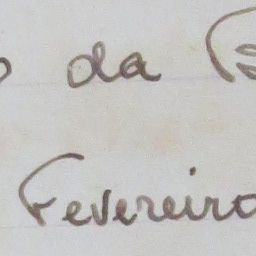 da
Fevereiro